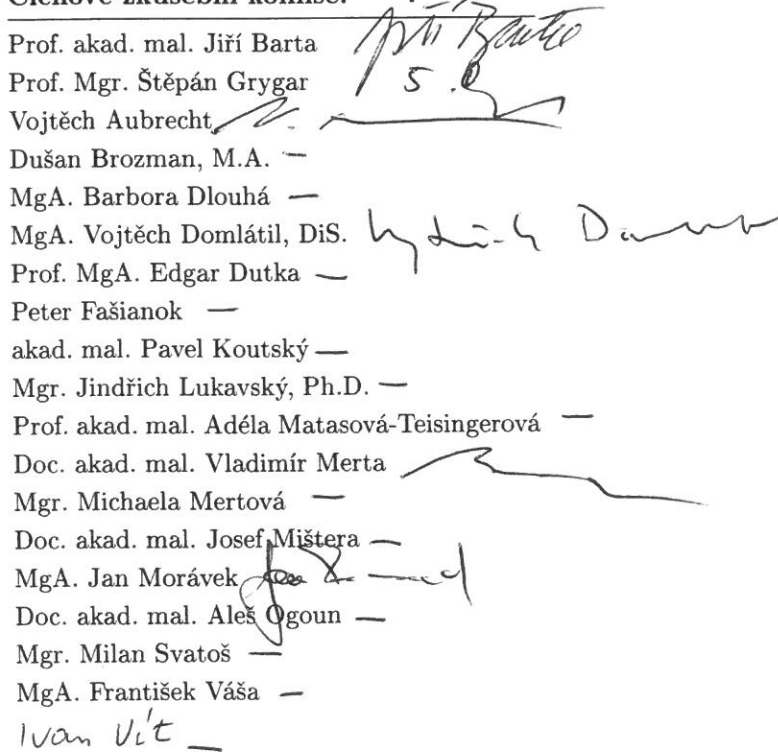 Členové zkušební komise:
Prof. akad. mal. Jiří Barta Jiří Barta
Prof. Mgr. Štěpán Grygar
Vojtěch Aubrecht
Dušan Brozman, M.A. —
MgA. Barbora Dlouhá —
MgA. Vojtěch Domlátil, DiS.
Prof. MgA. Edgar Dutka —
Peter Fašianok —
akad. mal. Pavel Koutský —
Mgr. Jindřich Lukavský, Ph.D. —
Prof. akad. mal. Adéla Matasová-Teisingerová —
Doc. akad. mal. Vladimír Merta
Mgr. Michaela Mertová —
Doc. akad. mal. Josef Mištera —
MgA. Jan Morávek
Doc. akad. mal. Aleš Ogoun —
Mgr. Milan Svatoš —
MgA. František Váša —
Ivan Vít —